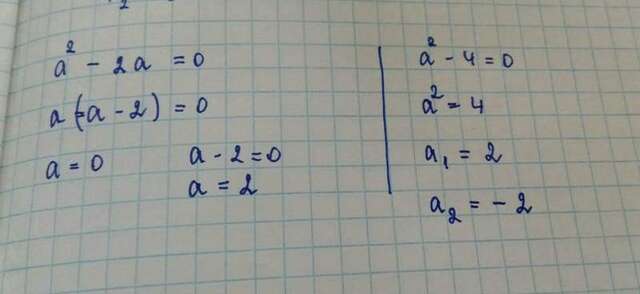 a² - 2a = 0
a (a - 2) = 0
a = 0 a - 2 = 0
a = 2
a² - 4 = 0
a² = 4
a₁ = 2
a₂ = - 2